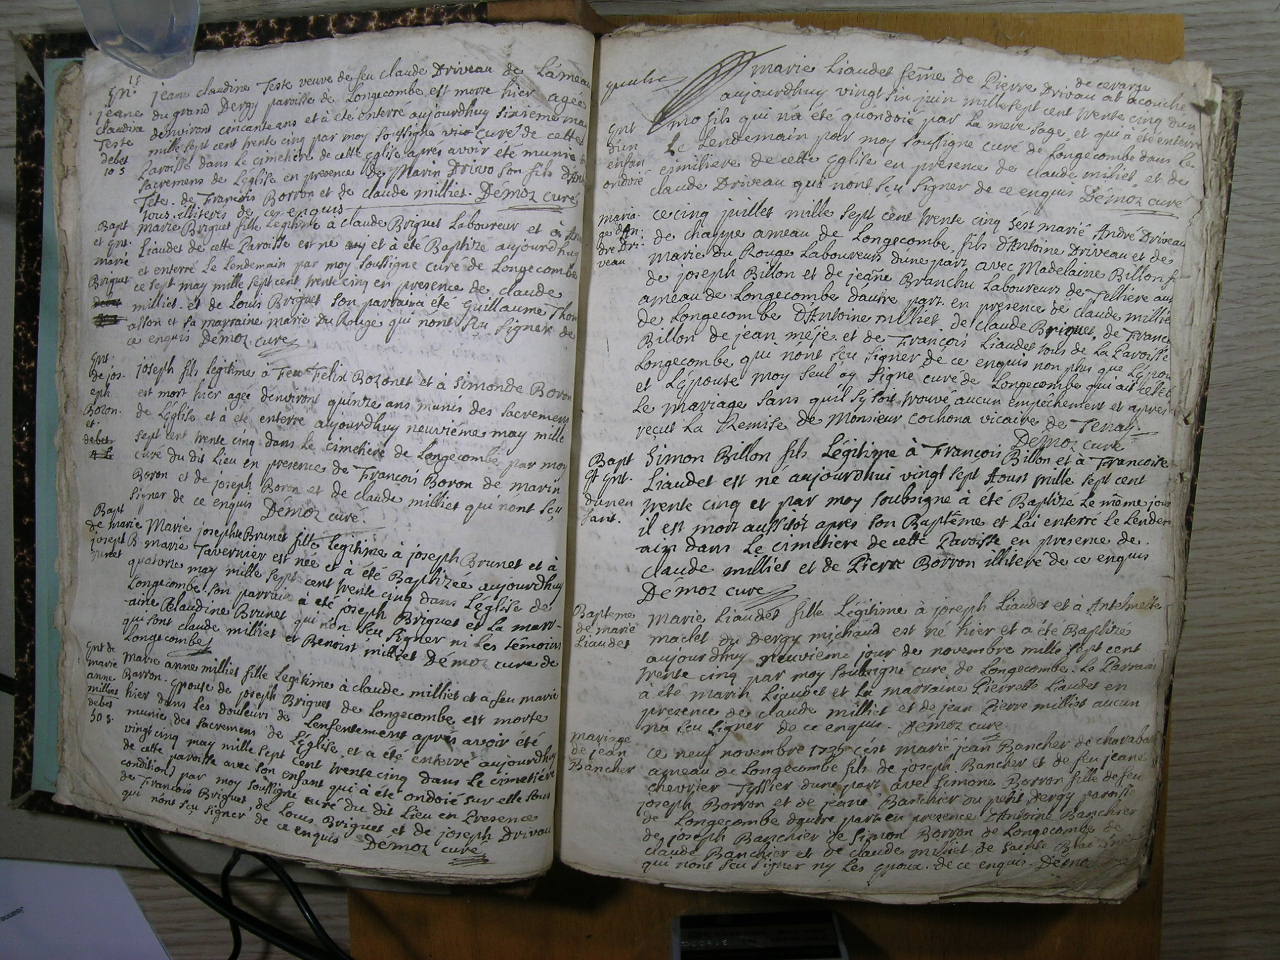 Jeane claudine Teste veuve de feu claude Driveau de Lameau
du grand Dergy paroisse de Longecombe est morte hier agée
denviron cincante ans et à été enterré aujourdhuy sixieme may
mille sept cent trente cinq par moy soussigne curé de cette
Paroisse dans le cimetiere de cette Eglise apres avoir été munie
sacremens de Leglise en presence de Marin Drivo son fils
Teste de François Borron et de claude milliet. Demoz curé
tous illiteres de ce enquis
Bapt
et Ent.
marie
Briguet
marie Briguet fille Legitime à claude Briguet Laboureur et à
Liaudet de cette Paroisse est né et à été Baptizé aujourdhuy
et enterré Le Lendemain par moy soussigne curé de Longecombe
ce sept may mille sept cent trente cinq en presence de claude
milliet et de Louis Briguet son parrain a été Guillaume
et sa marraine marie du Rouge qui nont seu signer de
ce enquis Demoz curé
Ent.
de jos-
eph
joseph fils legitime à Feu Felix Bozonet et à Simonde Boron
est mort hier agée denviron quinze ans munis des sacremens
de Leglise et à été enterré aujourdhuy neuvieme may mille
sept cent trente cinq dans le cimetiere de Longecombe par moy
curé du dit Lieu en presence de François Boron de marin
Boron et de joseph Boron et de claude milliet qui nont seu
signer de ce enquis Demoz curé
Bapt
de marie
joseph B
runet
Marie josephe Brunet fille Legitime à joseph Brunet et à
marie Tavernier est née et à été Baptizée aujourdhuy
quatorze may mille sept cent trente cinq dans Leglise de
Longecombe son parrain à été joseph Briguet et La marr-
aine Claudine Brunet qui non seu signer ni les temoins
qui sont claude milliet et Benoist milliet Demoz curé de
Longecombe
Ent de
marie
anne
milliet
debet
50 s.
Marie anne milliet fille Legitime à claude milliet et à feu marie
Barron. epouse de joseph Briguet de Longecombe est morte
hier dans les douleurs de Lenfentement apres avoir été
munie des sacremens de Leglise et à été enterré aujourdhuy
vingt cinq may mille sept cent trente cinq dans le cimetiere
de cette paroisse avec son enfant qui à été ondoié sur elle sous
condition par moy soussigne curé du dit Lieu en Presence
de François Briguet de Louis Briguet et de joseph Drivau
qui nont seu signer de ce enquis Demoz curé
marie Liaudet féme de Pierre Drivau de cerarge at acouché
aujourdhuy vingt sin juin mille sept cent trente cinq dun
fils qui na été quondoié par La mere sage et qui à été enterré
Le Lendemain par moy soussigne curé de Longecombe dans le
cimitiere de cette Eglise en presence de claude miliet et de
claude Driveau qui nont seu signer de ce enquis Démoz curé
Ent
dun
enfan
ondoié
maria-
ge d'An-
dré Dri-
veau
ce cinq juillet mille sept cent trente cinq sést marié André Driveau
de charpe ameau de Longecombe, fils d'Antoine Driveau et de
marie du Rouge Laboureurs dune part avec Madelaine Billon f
de joseph Billon et de jeane Branchu Laboureurs de Telliere
ameau de Longecombe dautre part en presence de claude milliet
de Longecombe d'Antoine milliet, de claude Briguet, de Franc
Billon de jean méje et de François Liaudet tous de La Paroisse
Longecombe qui nont seu signer de ce enquis non plus que Lépou
et Lépouse moy seul ay signé curé de Longecombe qui ait celebr
Le mariage sans quil sy soit trouvé aucun empechement et apres
reçut La Remise de Monsieur Cochona vicaire de Tenay
Demoz curé
Bapt
et Ent.
dun en
fant.
Simon Billon fils Légitime à François Billon et à Françoise
Liaudet est né aujourdhui vingt sept Aoust mille sept cent
trente cinq et par moy soubsigné à été Baptizé Le même jour
il est mort aussitot apres son Baptême et Lai enterré Le Lenden
ain dans Le cimetiere de cette Paroisse en presence de
claude milliet et de Pierre Borron illiteré de ce enquis
Démoz curé
Bapteme
de marie
Liaudet
Marie Liaudet fille Légitime à joseph Liaudet et à Anthelmette
maclet du Dergy michaud est né hier et a été Baptizé
aujourdhuy neuvieme jour de novembre mille sept cent
trente cinq par moy soubsigné curé de Longecombe. Le Parrain
à été marin Liaudet et La marraine Pierrette Liaudet en
presence de claude milliet et de jean Pierre milliet aucun
na seu signer de ce enquis. Démoz curé
mariage
de jean
Bancher
ce neuf novembre 1735 cést marié jean Bancher de charabat
ameau de Longecombe fils de joseph Bancher et de feu jeane
chevrier Tissier dune part avec Simone Borron fille de feu
joseph Borron et de jeane Banchier du petit Dergy paroisse
de Longecombe dautre part en presence d'Antoine Banchier
de joseph Banchier de Simon Borron de Longecombe de
claude Banchier et de claude milliet de
qui nont seu signer ny Les epoux. de ce enquis. Démo